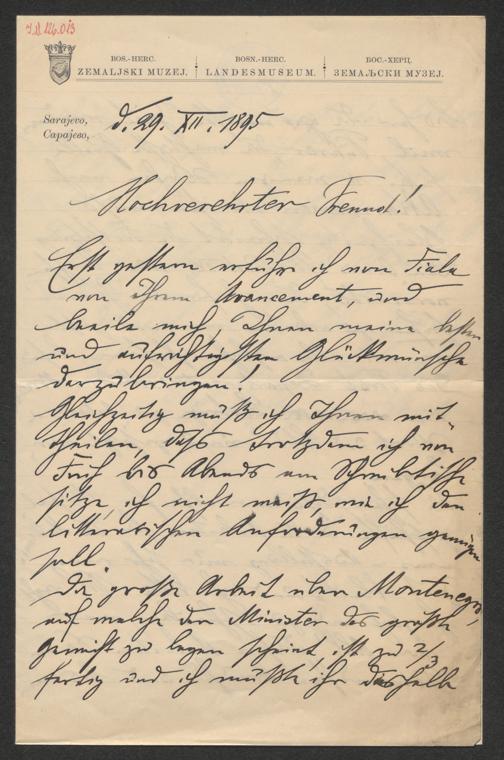 J.N. 126.013
BOS.-HERC.
ZEMALJSKI MUZEJ.
BOSN.-HERC.
LANDESMUSEUM.
БОС.-ХЕРЦ.
ЗЕМАЉСКИ МУЗЕЈ.
Sarajevo,
Сарајево,
d. 29. XII. 1895
Hochverehrter Freund!
Erst gestern erfuhr ich von Fiala
von Ihrem Avancement, und
beeile mich, Ihnen meine besten
und aufrichtigsten Glückwünsche
darzubringen!
Gleichzeitig muß ich Ihnen mit-
theilen, daß trotzdem ich von
Früh bis Abends am Schreibtische
sitze, ich nicht weiß, wie ich den
litterarischen Anforderungen genügen
soll.
Die große Arbeit über Montenegro,
auf welche der Minister das größte
Gewicht zu legen scheint, ist zu 2/3
fertig und ich mußte ihr deshalb